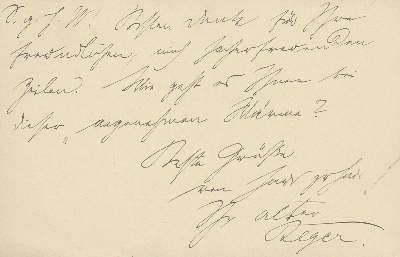 S. g. H. W. Besten Dank für Ihre
freundlichen, mich sehr erfreuenden
Zeilen. Wie geht es Ihnen bei
dieser „angenehmen Wärme?
Beste Grüße
von Haus zu Haus!
Ihr alter
Reger.